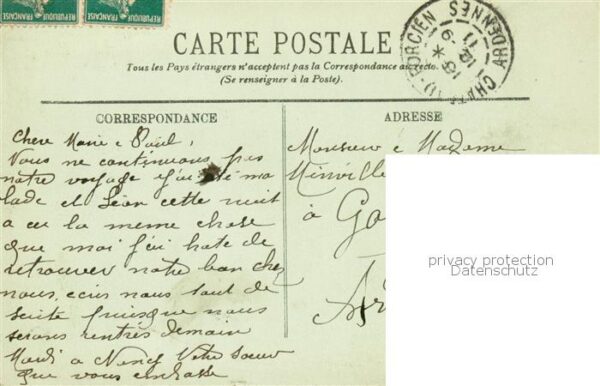 RÉPUBLIQUE FRANÇAISE RÉPUBLIQUE FRANÇAISE
CARTE POSTALE
Tous les Pays étrangers n'acceptent pas la Correspondance au recto.
(Se renseigner à la Poste).
CHÂTEAU-PORCIEN ARDENNES
CORRESPONDANCE
Chere Marie e Paul,
Vous ne continuons pas
notre voyage j'ai été ma
lade et Léon cette nuit
a eu la meme chose
que moi j'ai hate de
retrouver notre bon chez
nous, ecris nous tout de
suite puisque nous
serons rentrés demain
Mardi a Nancy Votre soeur
que vous embrasse
ADRESSE
Monsieur e Madame
à
privacy protection
Datenschutz